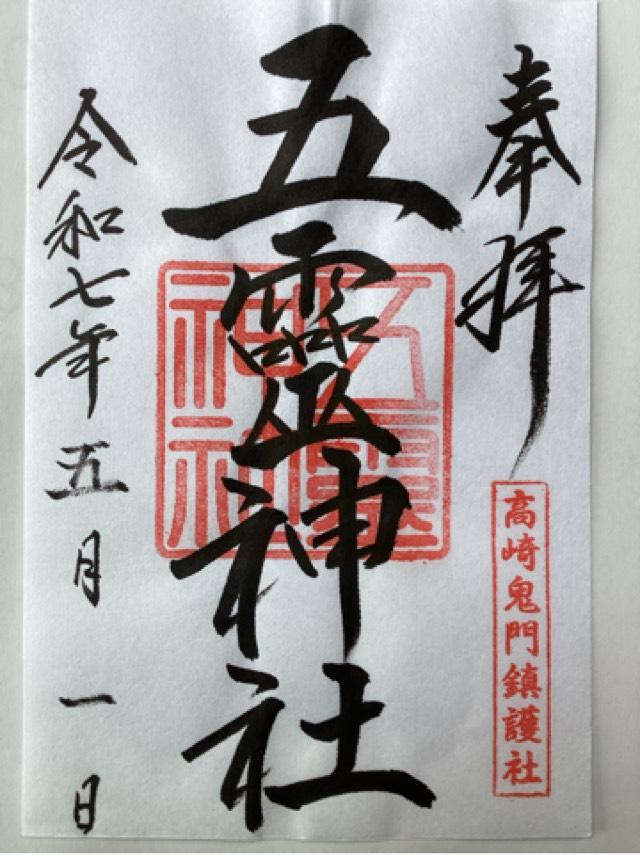 奉拝
高崎鬼門鎮護社
五靈神社
五靈神社
令和七年五月一日